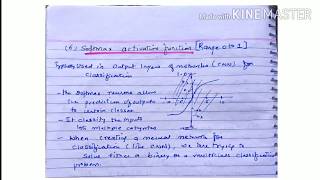 Made with KINEMASTER
(6) Softmax activation function [Range 0 to 1]
Typically used in output layers of networks (CNN) for
classification
1.0
- The softmax neurons allow
the prediction of outputs
to certain classes
- It classify the inputs
into multiple categories
- When creating a neural network for
classification (like CNN), we are trying to
solve either a binary or a multiclass classification
problem.